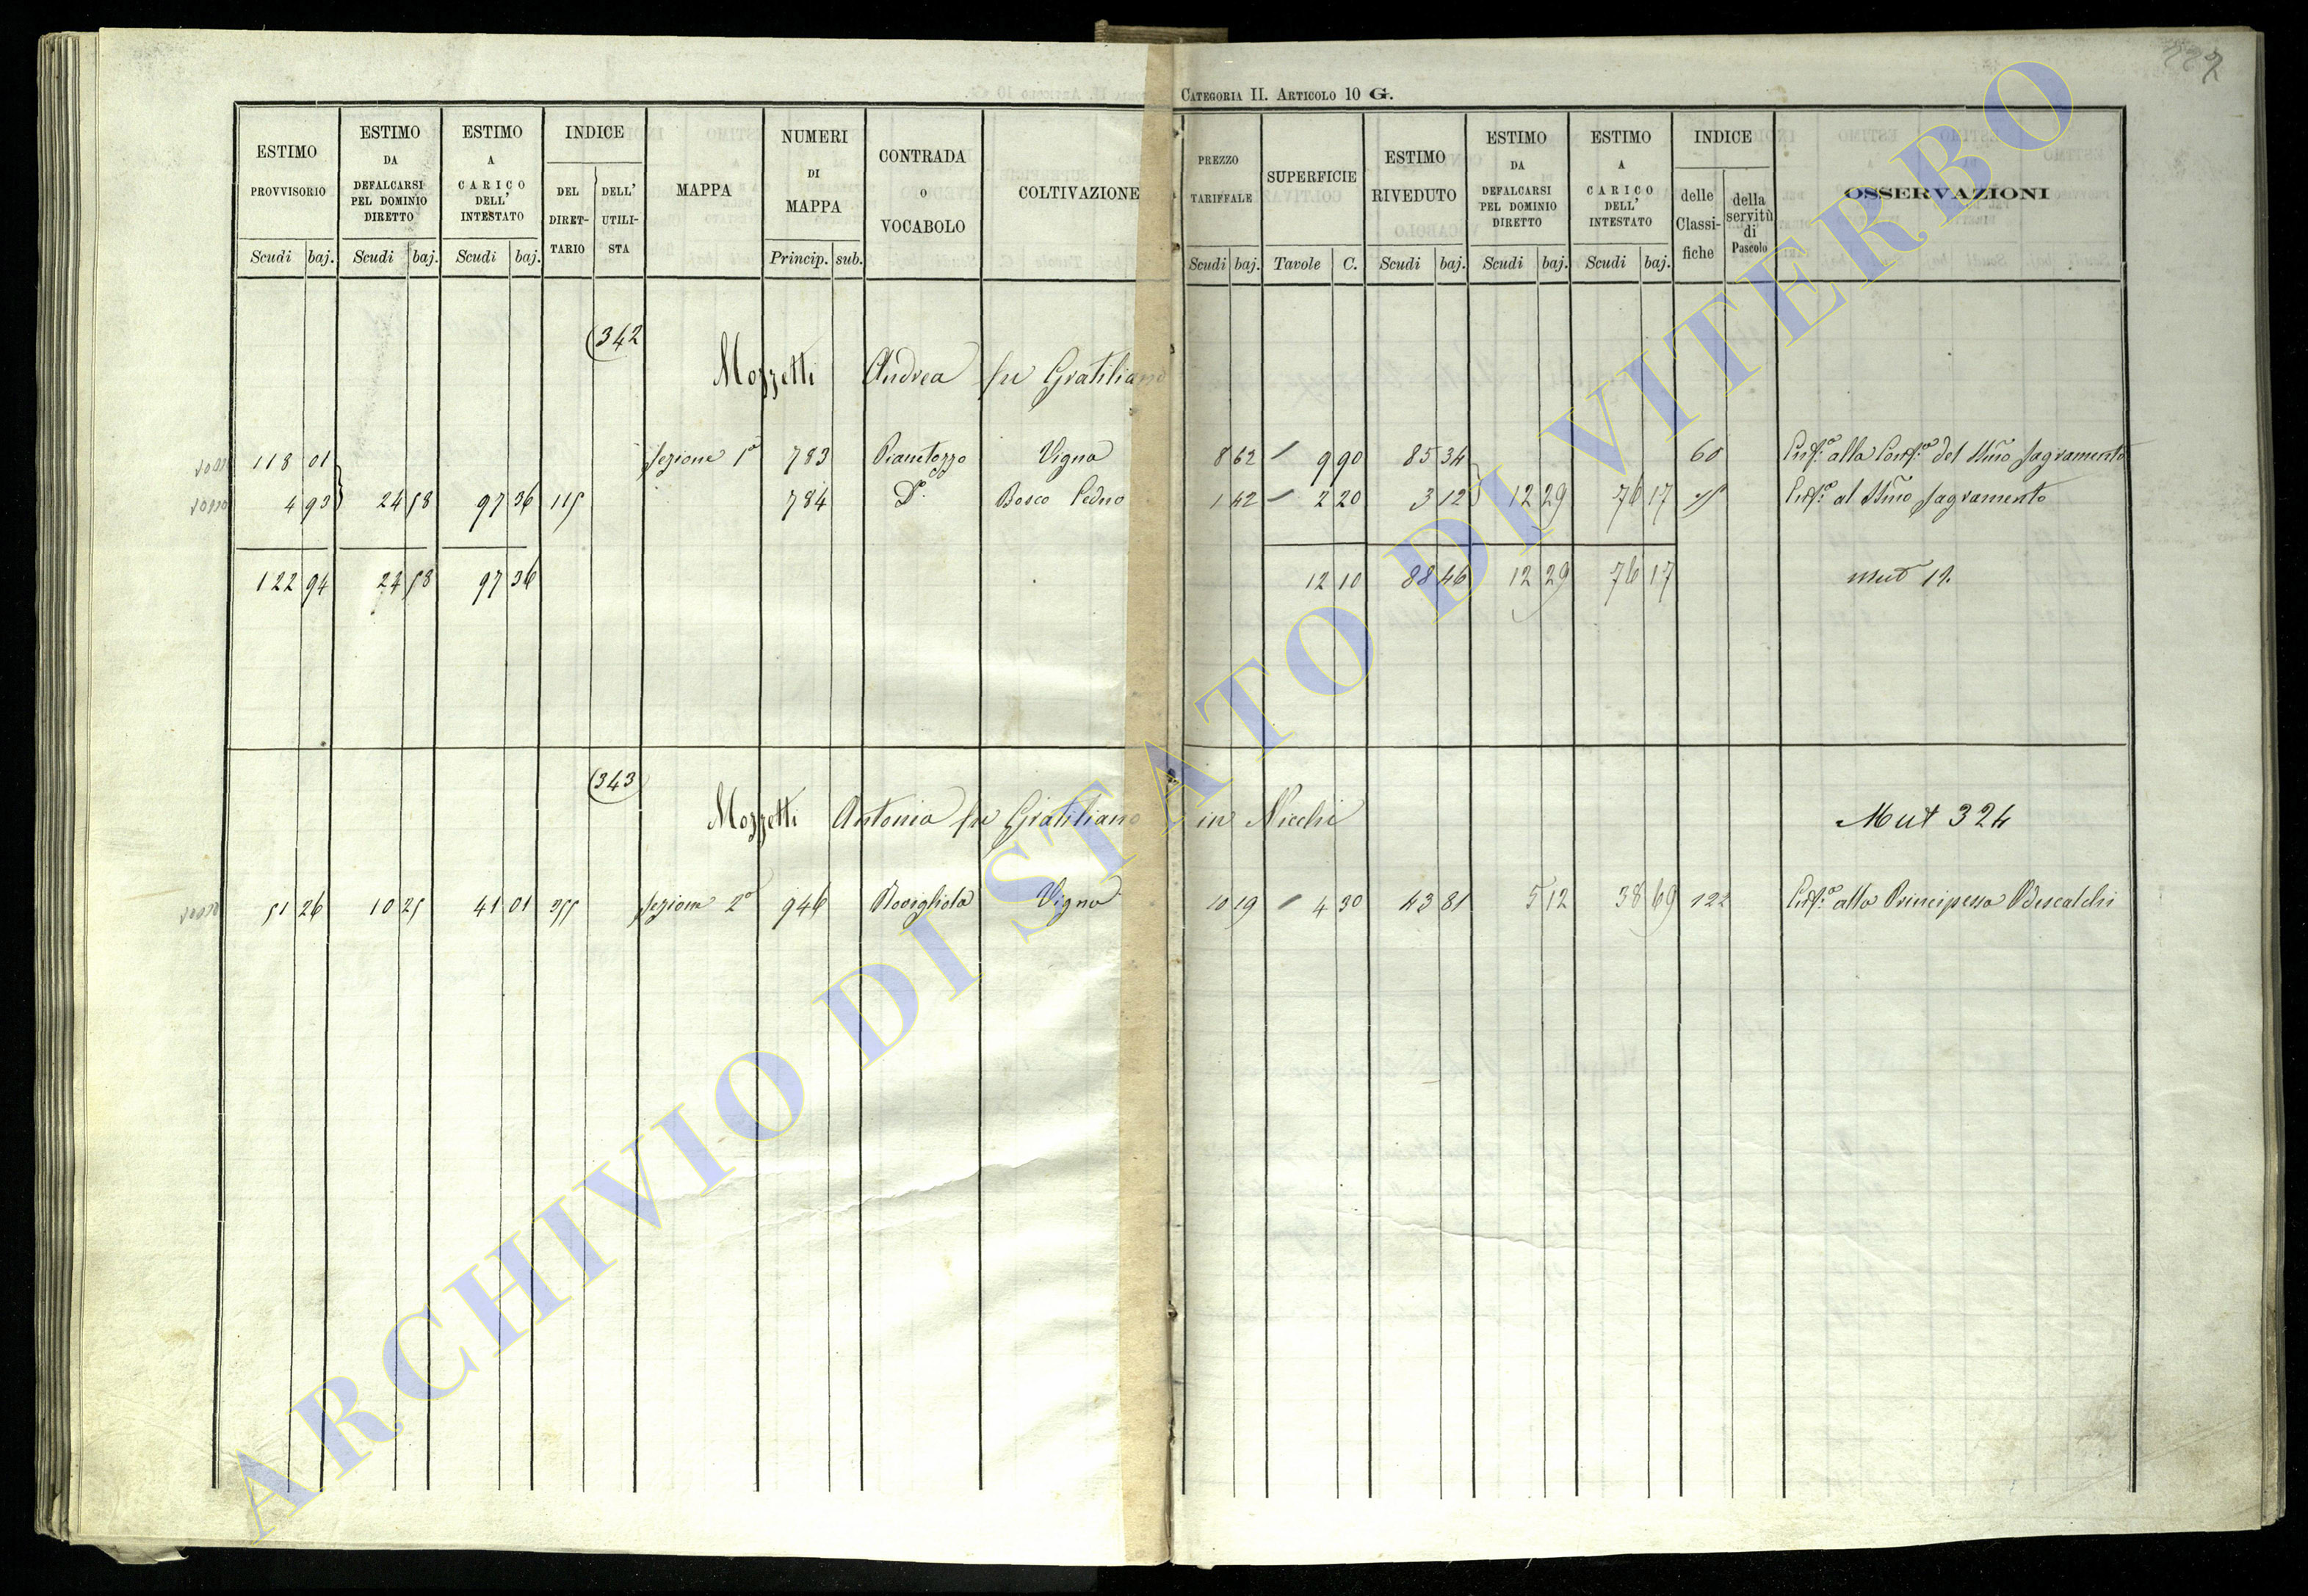 CATEGORIA II. ARTICOLO 10 G.
ESTIMO PROVVISORIO Scudi baj.
ESTIMO DA DEFALCARSI PEL DOMINIO DIRETTO Scudi baj.
ESTIMO A CARICO DELL' INTESTATO Scudi baj.
INDICE DEL DIRETTARIO DELL' UTILISTA
MAPPA
NUMERI DI MAPPA Princip. sub.
CONTRADA O VOCABOLO
COLTIVAZIONE
PREZZO TARIFFALE Scudi baj.
SUPERFICIE Tavole C.
ESTIMO RIVEDUTO Scudi baj.
ESTIMO DA DEFALCARSI PEL DOMINIO DIRETTO Scudi baj.
ESTIMO A CARICO DELL' INTESTATO Scudi baj.
INDICE delle Classifiche della servitù di Pascolo
OSSERVAZIONI
342
Mozzetti Andrea fu Gratiliano
118 01 Sezione 1a 783 Pianetozzo Vigna 8 62 9 90 85 34 60 Enfa. alla Confa. del SSmo Sagramento
4 93 24 58 97 36 115 784 Do. Bosco Cedno 1 42 2 20 3 12 12 29 76 17 Enfa. al SSmo Sagramento
122 94 24 58 97 36 12 10 88 46 12 29 76 17 mut 12.
343
Mozzetti Antonia fu Gratiliano in Nicchi Mut 324
51 26 10 25 41 01 255 Sezione 2a 946 Rovigliola Vigna 10 19 4 30 43 81 5 12 38 69 122 Enfa. alla Principessa Odescalchi
ARCHIVIO DI STATO DI VITERBO